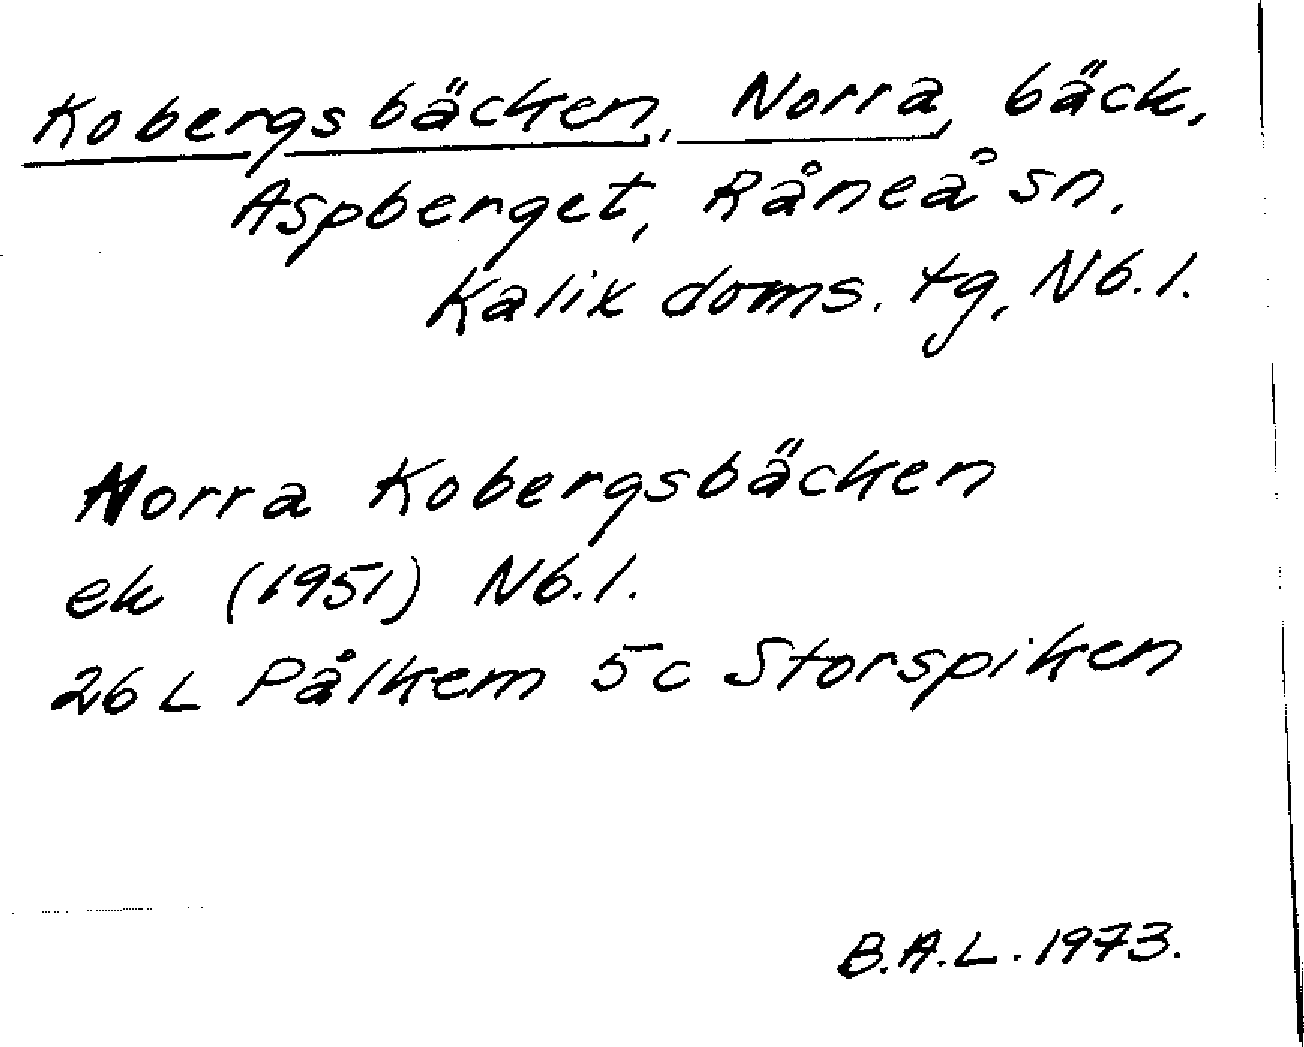 Kobergsbäcken, Norra, bäck,
Aspberget, Råneå sn.
Kalix doms. tg, Nb. l.
Norra Kobergsbäcken
ek (1951) Nb. l.
26 L Pålkem 5c Storspiken
B.A.L. 1973.